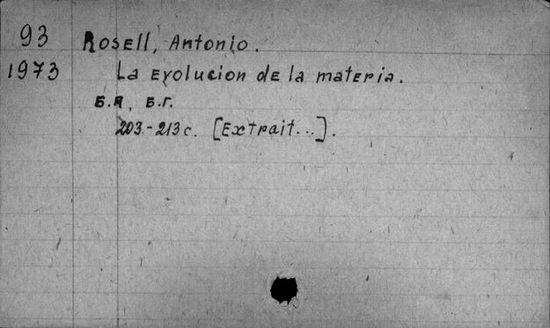 93 Rosell, Antonio.
1973 La evolucion de la materia.
Б.Я, Б.Г.
203.-213 с. [Extrait...].